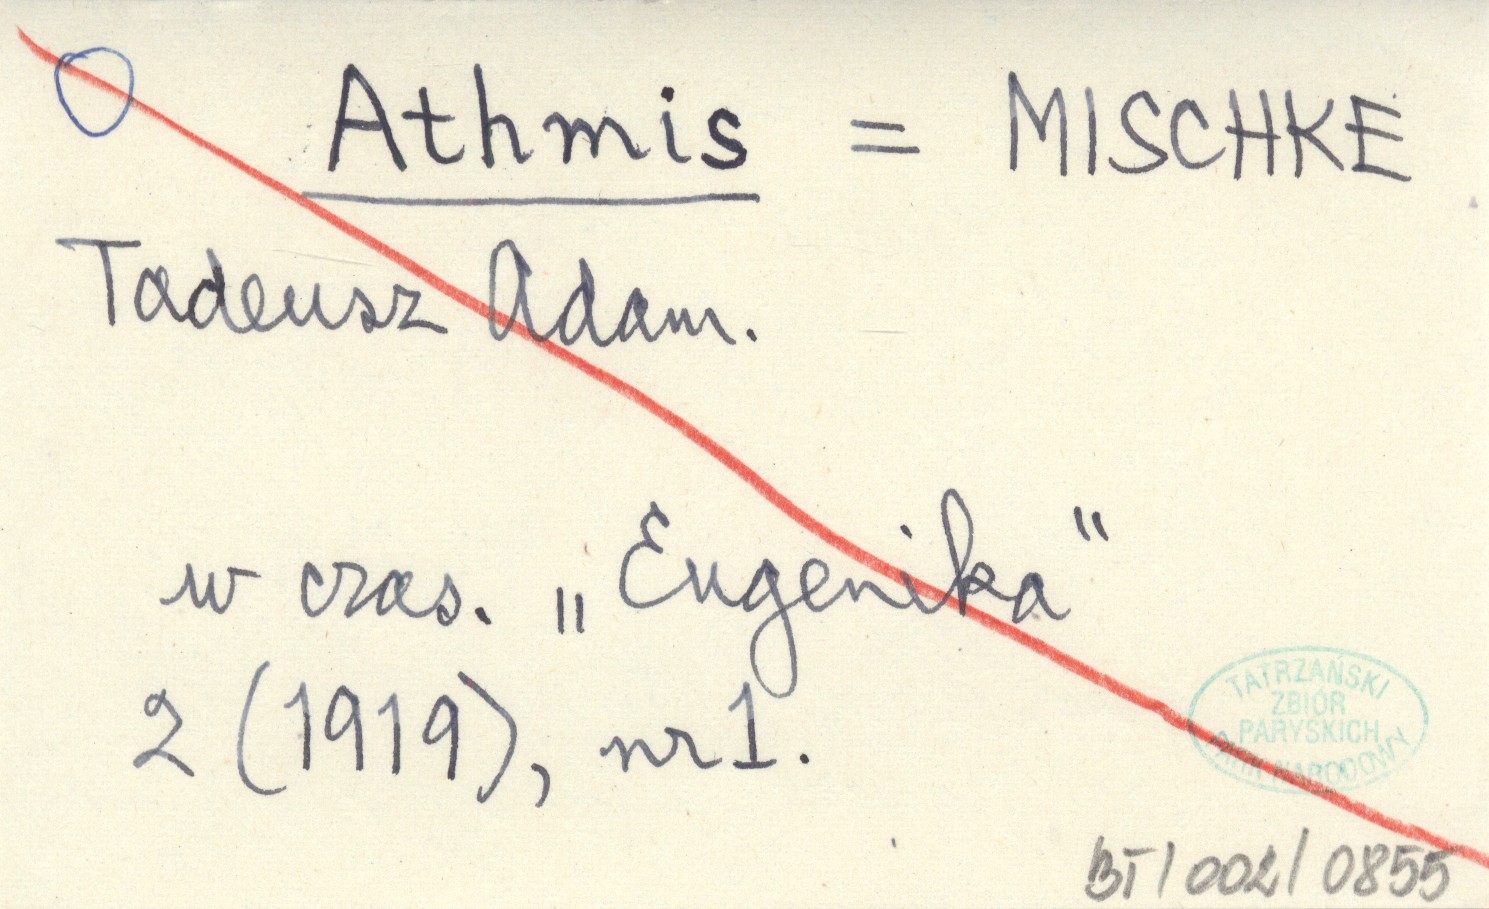 Athmis = MISCHKE
Tadeusz Adam.
w czas. „Eugenika"
2 (1919), nr 1.
TATRZAŃSKI
ZBIÓR
PARYSKICH
PARK NARODOWY
BT/002/0855